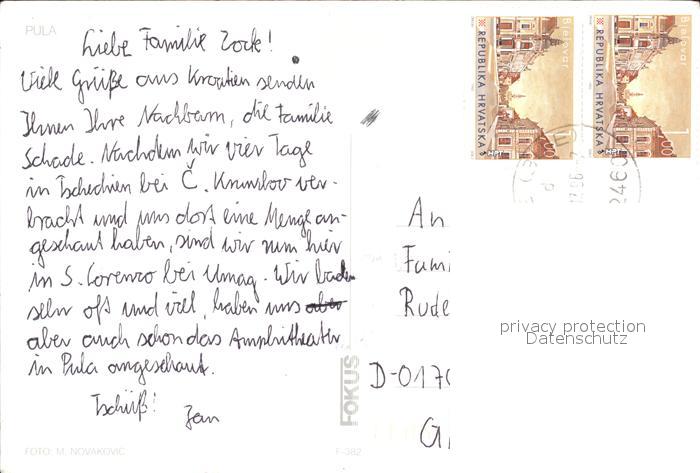 PULA
Liebe Familie Zock!
Viele Grüße aus Kroatien senden
Ihnen Ihre Nachbarn, die Familie
Schade. Nachdem wir vier Tage
in Tschechien bei Č. Krumlov ver-
bracht und uns dort eine Menge an-
geschaut haben, sind wir nun hier
in S. Lorenzo bei Umag. Wir baden
sehr oft und viel, haben uns aber
aber auch schon das Amphitheater
in Pula angeschaut.
Tschüß! Jan
FOTO: M. NOVAKOVIĆ
F-382
FOKUS
Bjelovar
REPUBLIKA HRVATSKA
Bjelovar
REPUBLIKA HRVATSKA
An
Fami
Rude
D-0170
G
privacy protection
Datenschutz